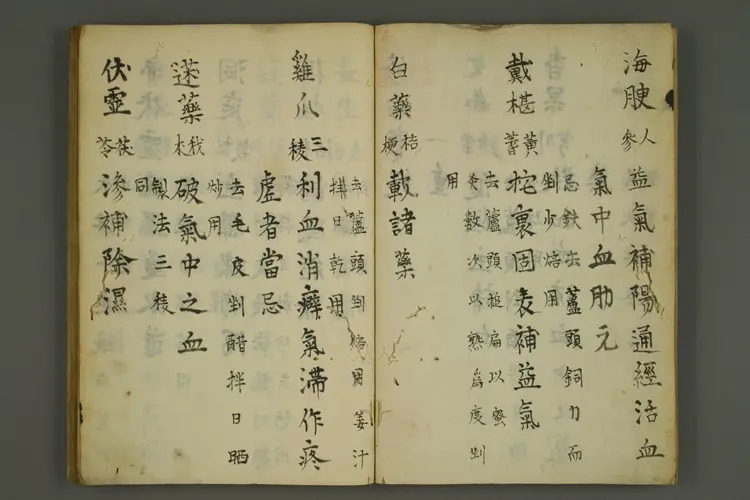 海腴 人參 益氣補陽通經活血
氣中血肋元
忌鉄去蘆頭銅刀而
剉少焙用
戴椹 黃蓍 挓裏固表補益氣
去蘆頭搥扁以蜜
炙數次以熟為度剉
用
白藥 桔梗 載諸藥
去蘆頭剉焙用姜汁
拌日乾用
雞爪 三稜 利血消癖氣滯作疼
虛者當忌
去毛皮剉醋拌日晒
炒用
蓬藥 莪朮 破氣中之血
製法三稜
同
伏靈 茯苓 滲補除濕